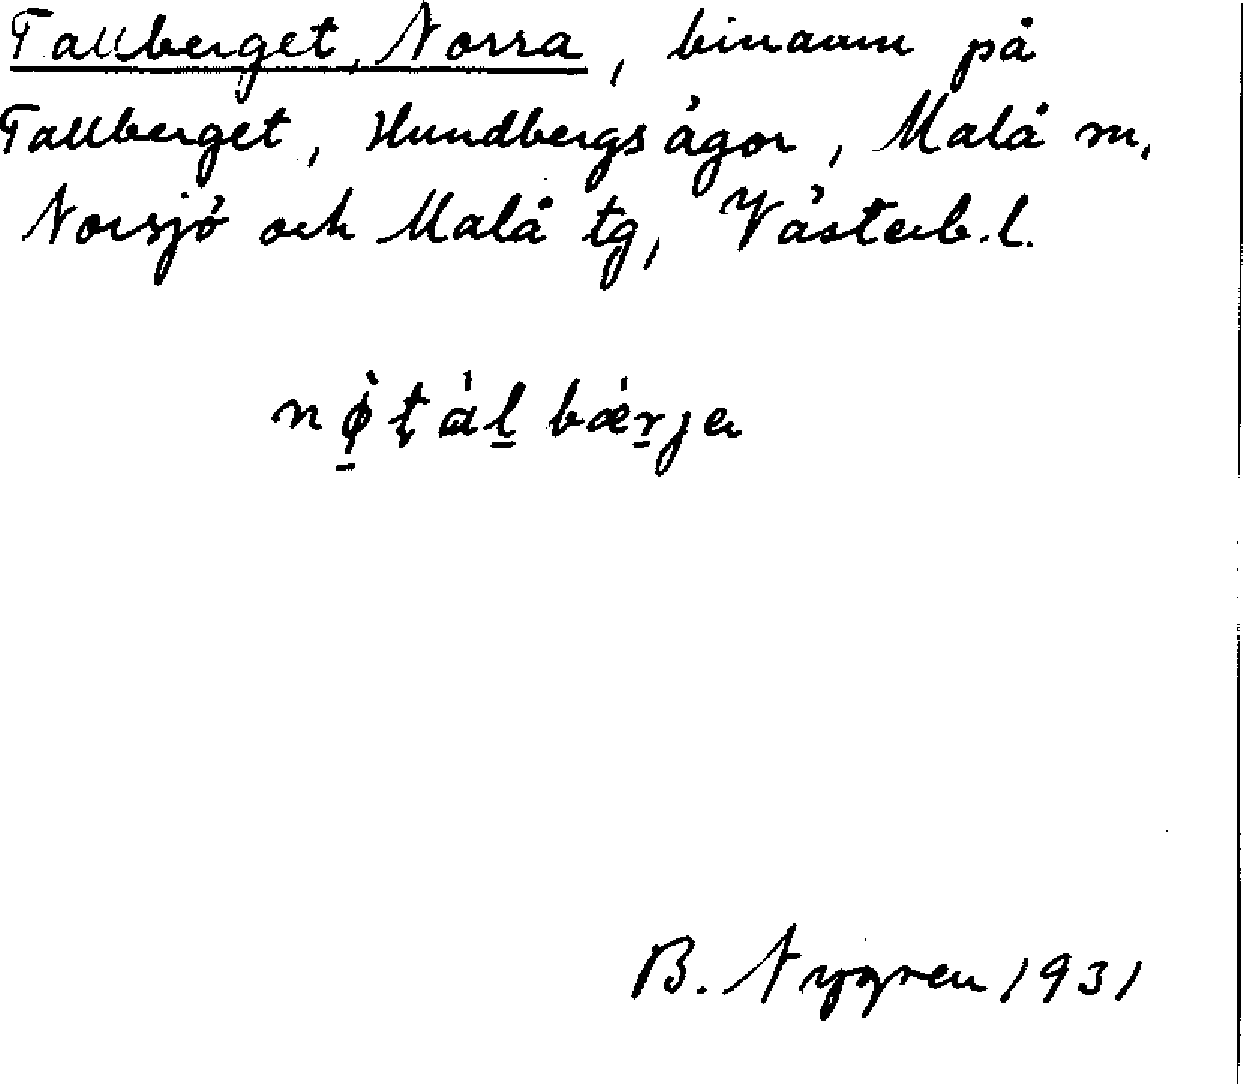 Tallberget, Norra, binamn på
Tallberget, Hundbergs ägor, Malå sn,
Norsjö och Malå tg, Västerb.l.
nø̱̀ t̨ àḻ bǽṟjɐ
B. Nygren 1931